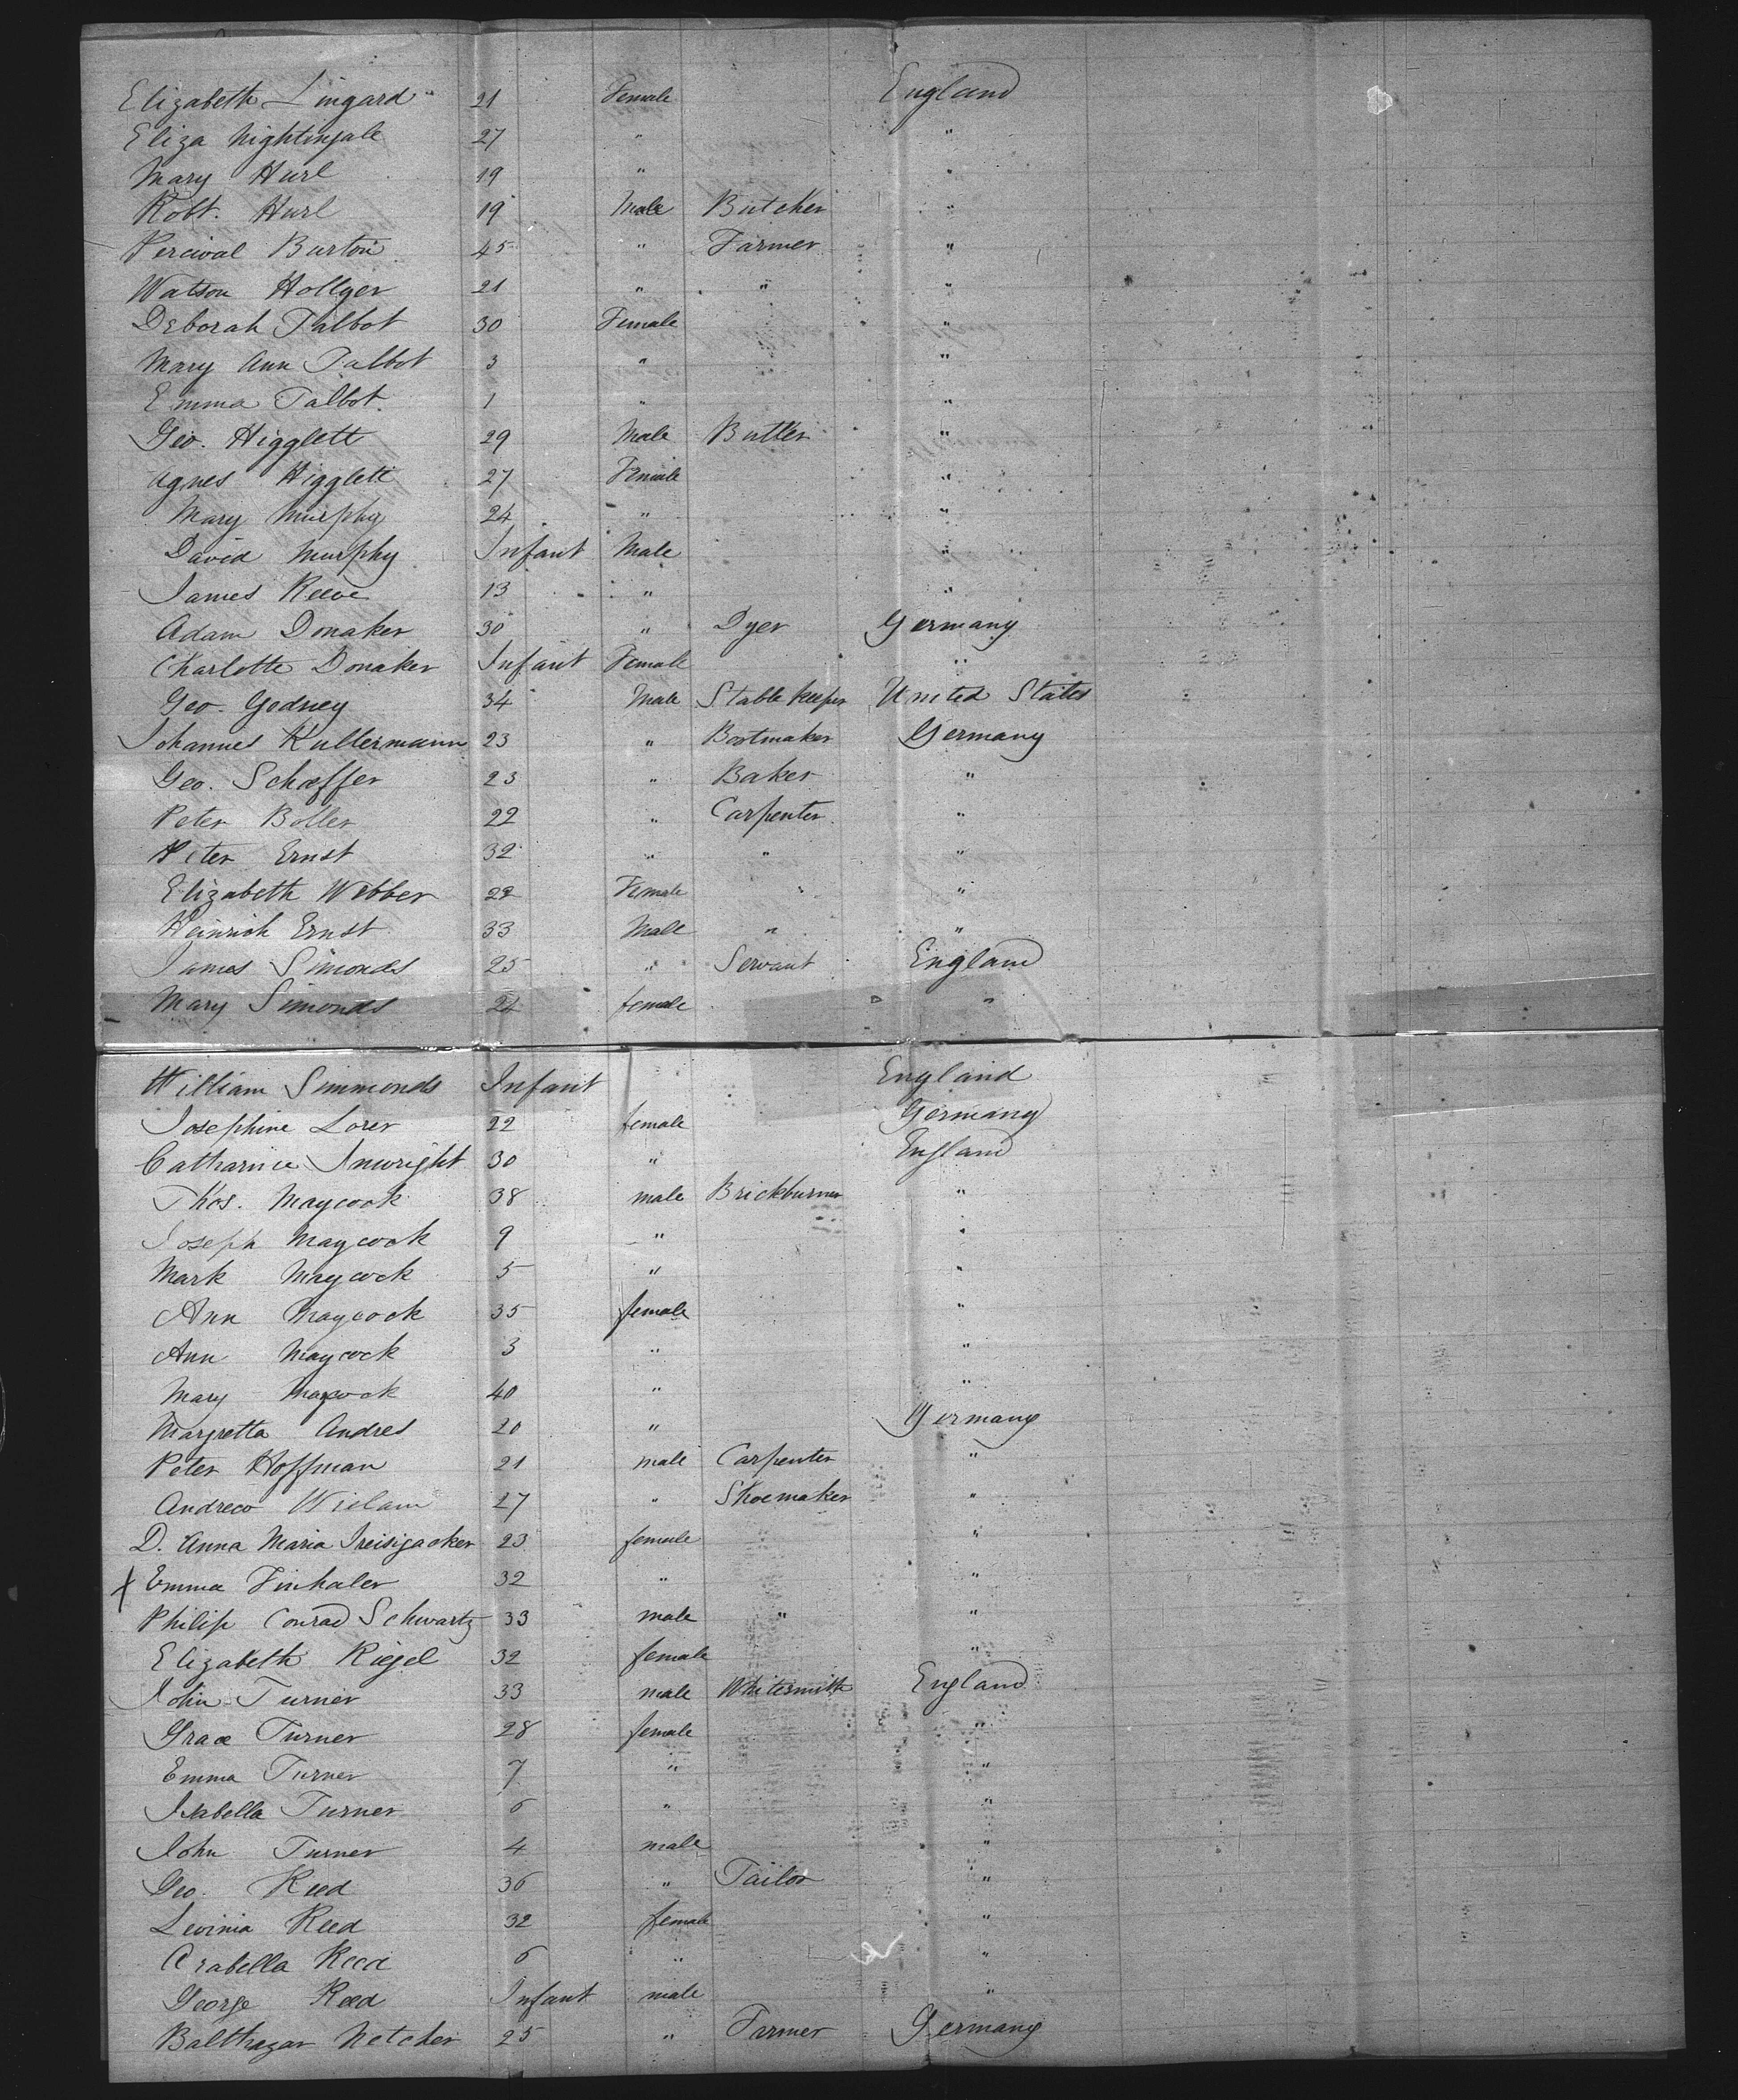 Elizabeth Lingard " 21 Female England
Eliza Nightingale 27 " "
Mary Hurl 19 " "
Robt. Hurl 19 Male Butcher "
Percival Burton 45 " Farmer "
Watson Hollyer 21 " " "
Deborah Talbot 30 Female "
Mary Ann Talbot 3 " "
Emma Talbot. 1 " "
Geo. Higglett 29 Male Butler "
Agnes Higglett 27 Female "
Mary Murphy 24 " "
David Murphy Infant Male "
James Reeve 13 " "
Adam Donaker 30 " Dyer Germany
Charlotte Donaker Infant Female "
Geo. Godney 34 Male Stable Keeper United States
Johannes Kullermann 23 " Bootmaker Germany
Geo. Schæffer 23 " Baker "
Peter Boller 22 " Carpenter "
Peter Ernst 32 " " "
Elizabeth Webber 22 Female " "
Heinrich Ernst 33 Male " "
James Simonds 25 " Servant England
Mary Simonds 24 female "
William Simmonds Infant England
Josephine Lorer 22 female Germany
Catharine Inwright 30 " England
Thos. Maycock 38 male Brickburner "
Joseph Maycock 9 " "
Mark Maycock 5 " "
Ann Maycock 35 female "
Ann Maycock 3 " "
Mary Maycock 40 " "
Margretta Andres 20 " Germany
Peter Hoffman 21 male Carpenter "
Andrew 27 " Shoemaker "
D. Anna Maria 23 female "
X Emma Finhaler 32 " "
Philip Conrad Schwartz 33 male " "
Elizabeth Riegel 32 female "
John Turner 33 male Whitesmith England
Grace Turner 28 female "
Emma Turner 7 " "
Isabella Turner 6 " "
John Turner 4 male "
Geo. Reed 36 " Tailor "
Levinia Reed 32 female "
Arabella Reed 6 " "
George Reed Infant male "
Balthazar Netcher 25 " Farmer Germany